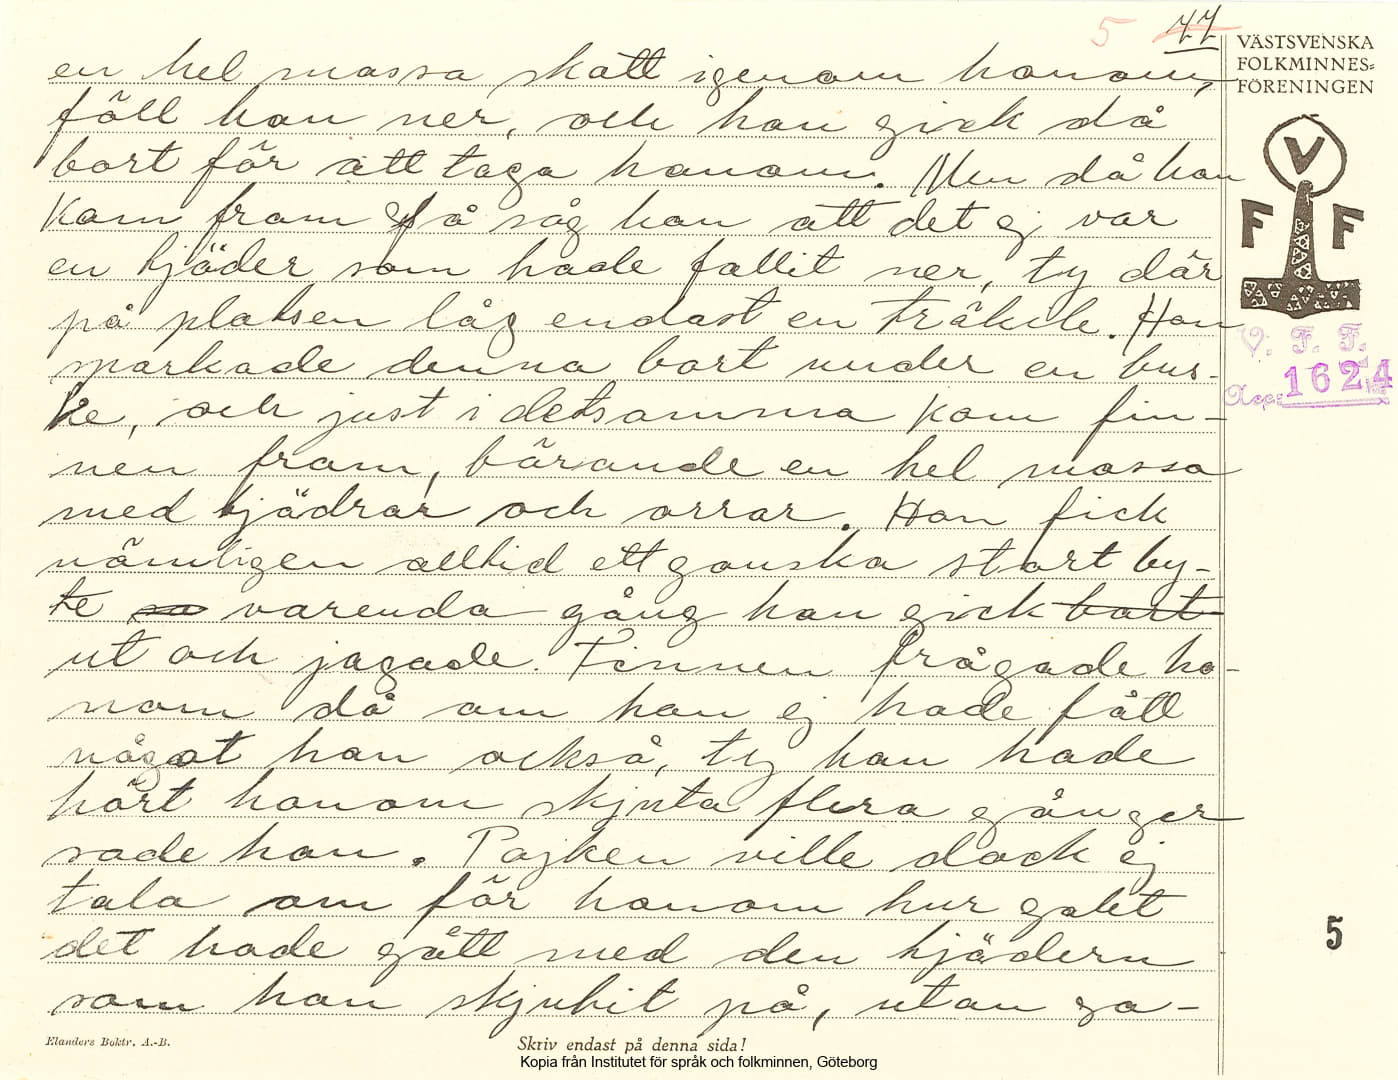 5 77
VÄSTSVENSKA
FOLKMINNES-
FÖRENINGEN
V
F F
V. F. F.
1624
en hel massa skott igenom honom,
föll han ner, och han gick då
bort för att taga honom. Men då han
kom fram så såg han att det ej var
en kjäder som hade fallit ner, ty där
på platsen låg endast en träkile. Han
sparkade denna bort under en bus-
ke, och just i detsamma kom fin-
nen fram, bärande en hel massa
med kjädrar och orrar. Han fick
nämligen alltid ett ganska stort by-
te varenda gång han gick bort
ut och jagade. Finnen frågade ho-
nom då om han ej hade fått
något han också, ty han hade
hört honom skjuta flera gånger
sade han. Pojken ville dock ej
tala om för honom hur galet
det hade gått med den kjädern
som han skjutit på, utan sa-
5
Elanders Boktr. A.-B.
Skriv endast på denna sida!
Kopia från Institutet för språk och folkminnen, Göteborg